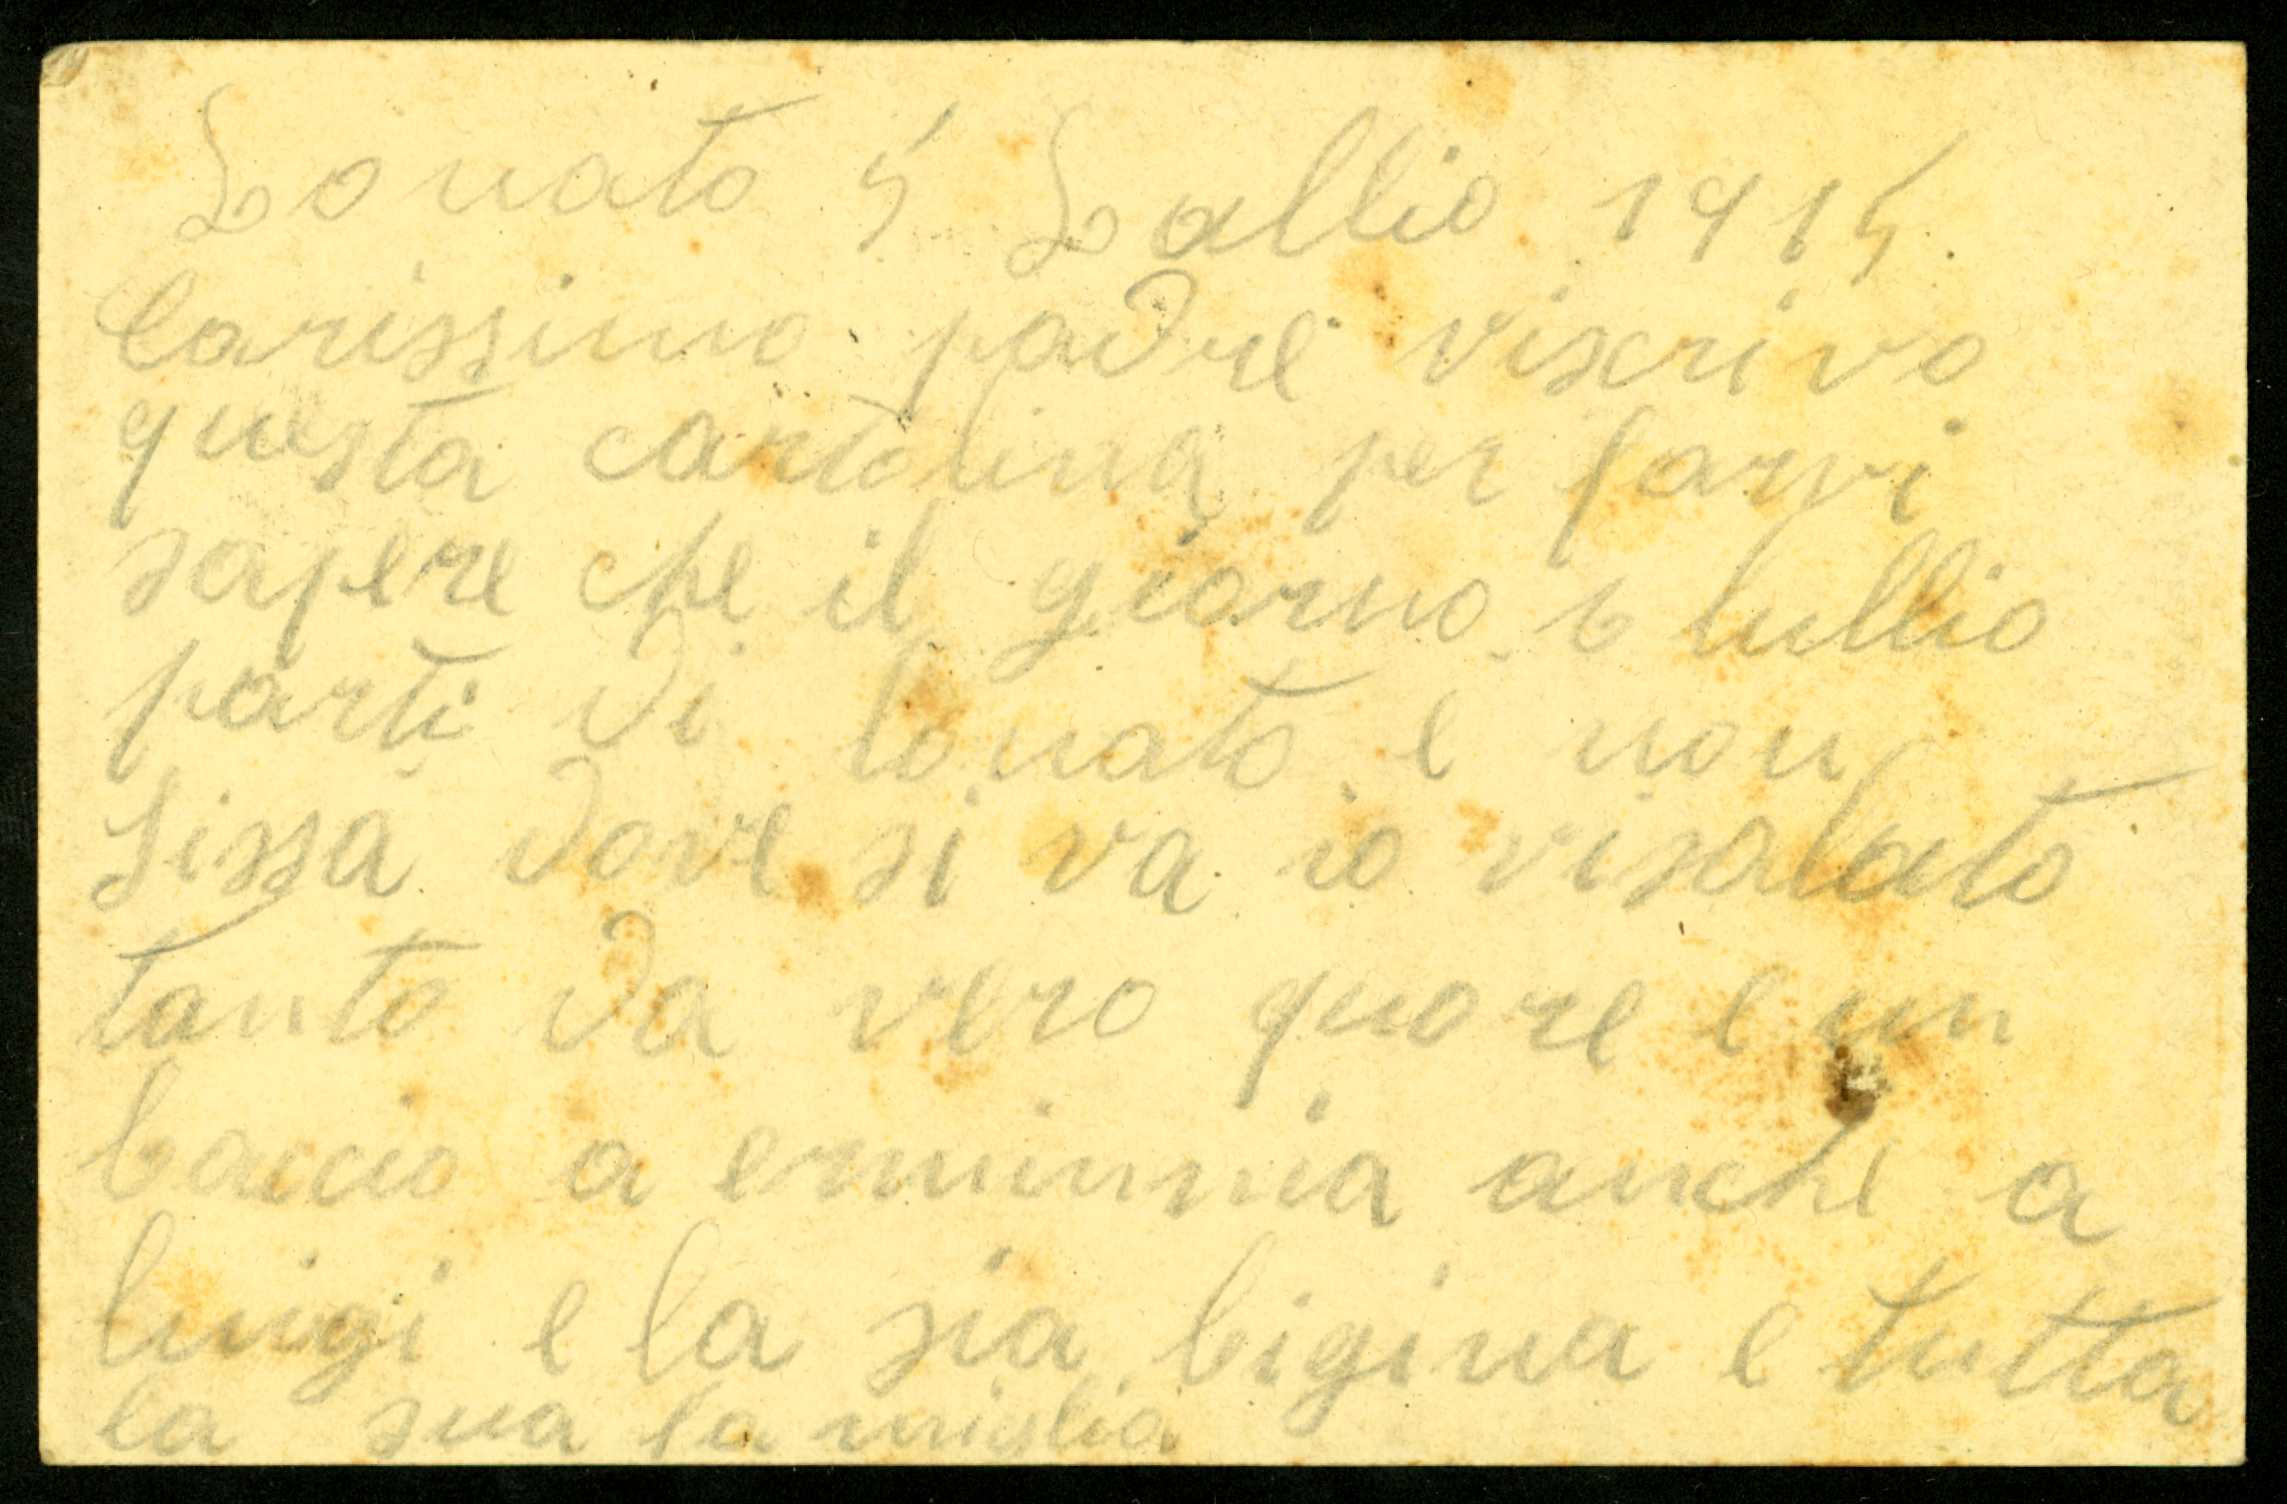 Lonato 5 Lullio 1915
Carissimo padre viscrivo
questa cartolina per farvi
sapere che il giorno 6 lullio
parti di lonato e non
sissa dove si va io visalato
tanto da vero quore e un
baccio a erminnia anche a
luigi e la sia bigina e tutta
la sua famiglia